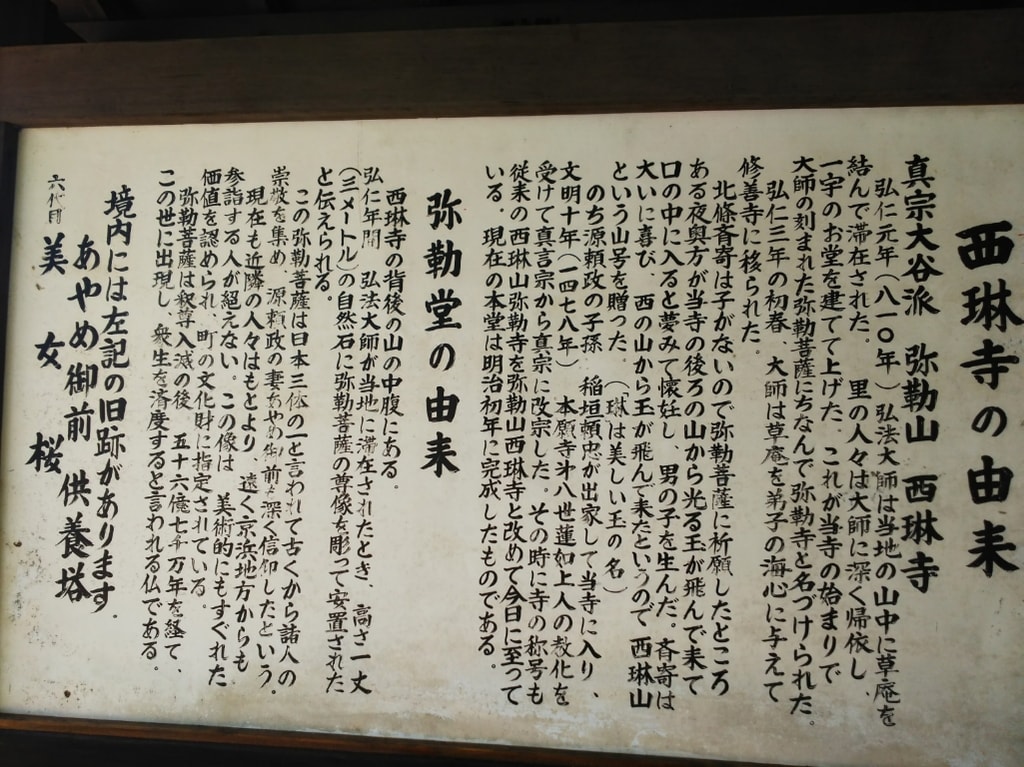 西琳寺の由来
真宗大谷派　弥勒山　西琳寺
弘仁元年（八一〇年）弘法大師は当地の山中に草庵を
結んで滞在された。　里の人々は大師に深く帰依し、
一宇のお堂を建てて上げた、これが当寺の始まりで
大師の刻まれた弥勒菩薩にちなんで弥勒寺と名づけられた。
弘仁三年の初春、大師は草庵を弟子の海心に与えて
修善寺に移られた。
北條斉寄は子がないので弥勒菩薩に祈願したところ
ある夜奥方が当寺の後ろの山から光る玉が飛んで来て
口の中に入ると夢みて懐妊し、男の子を生んだ。斉寄は
大いに喜び、西の山から玉が飛んで来たというので　西琳山
という山号を贈った。　（琳は美しい玉の名）
のち源頼政の子孫　稲垣頼忠が出家して当寺に入り、
文明十年（一四七八年）　本願寺才八世蓮如上人の教化を
受けて真言宗から真宗に改宗した。その時に寺の称号も
従来の西琳山弥勒寺を弥勒山西琳寺と改めて今日に至って
いる。現在の本堂は明治初年に完成したものである。
弥勒堂の由来
西琳寺の背後の山の中腹にある。
弘仁年間　弘法大師が当地に滞在されたとき、高さ一丈
（三メートル）の自然石に弥勒菩薩の尊像を彫って安置された
と伝えられる。
この弥勒菩薩は日本三体の一と言われて古くから諸人の
崇敬を集め、源頼政の妻あやめ御前も深く信仰したという。
現在も近隣の人々はもとより　遠く京浜地方からも
参詣する人が絶えない。この像は　美術的にもすぐれた
価値を認められ、町の文化財に指定されている。
弥勒菩薩は釈尊入滅の後　五十六億七千万年を経て、
この世に出現し、衆生を済度すると言われる仏である。
境内には左記の旧跡があります。
あやめ御前　供養塔
六代目　美女桜